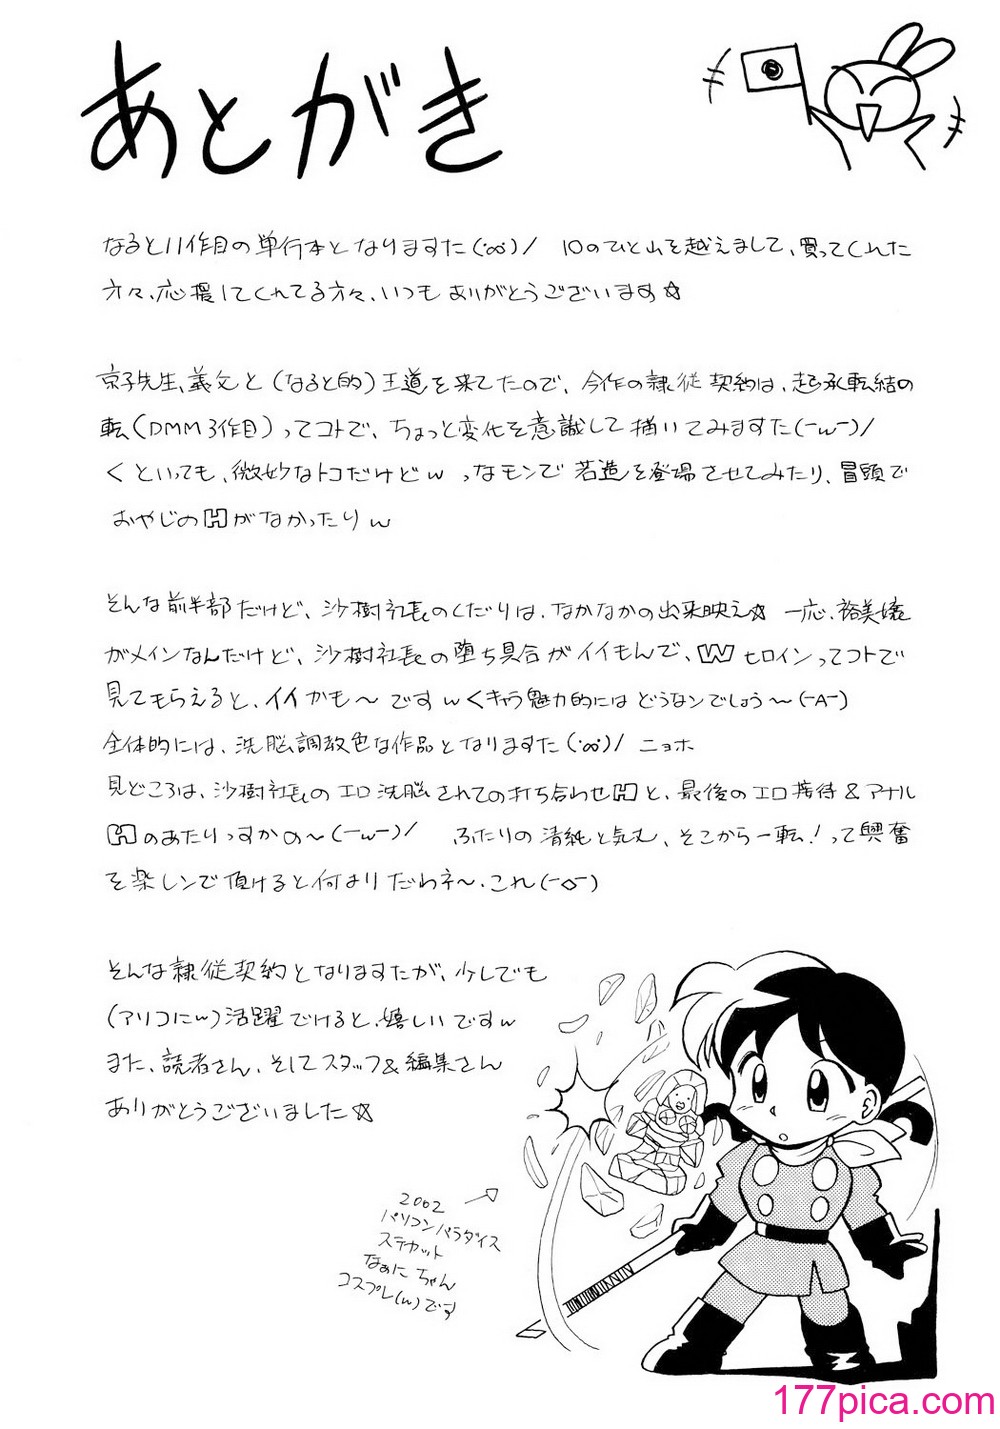 あとがき
なると11作目の単行本となりますた(・∞)/ 10のひと山を越えまして、買ってくれた
方々、応援してくれてる方々、いつもありがとうございます☆
京子先生、義父と(なると的)王道を来てたので、今作の隷従契約は、起承転結の
転(DMM3作目)ってコトで、ちょっと変化を意識して描いてみますた(ーwー)/
くといっても、微妙なトコだけどw っなモンで若造を登場させてみたり、冒頭で
おやじのHがなかったりw
そんな前半部だけど、沙樹社長のくだりは、なかなかの出来映え☆ 一応、裕美嬢
がメインなんだけど、沙樹社長の堕ち具合がイイもんで、WヒロインってコトでF
見てもらえると、イイかも〜ですw くキャラ魅力的にはどうなンでしょう〜(ーAー)
全体的には、洗脳調教色な作品となりますた(・∞)/ ニョホ
見どころは、沙樹社長のエロ洗脳されての打ち合わせHと、最後のエロ接待&アナル
Hのあたりっすかの〜(ーwー)/ ふたりの清純と気丈、そこから一転!って興奮
を楽しンで頂けると何よりだわネ〜、これ(ー◇ー)
そんな隷従契約となりますたが、少しでも
(アソコにw)活躍でけると、嬉しいですw
また、読者さん、そしてスタッフ&編集さん
ありがとうございました☆
2002
パソコンパラダイス
ステカット
なぁにちゃん
コスプレ(w)です
177pica.com